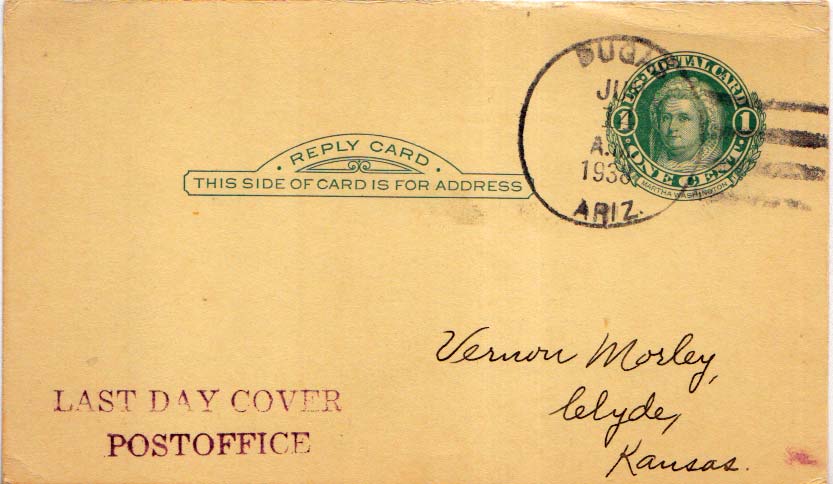 U.S. POSTAL CARD
1 1
ONE CENT
MARTHA WASHINGTON
A.
1938
ARIZ.
REPLY CARD
THIS SIDE OF CARD IS FOR ADDRESS
Vernon Morley,
Clyde,
Kansas.
LAST DAY COVER
POSTOFFICE